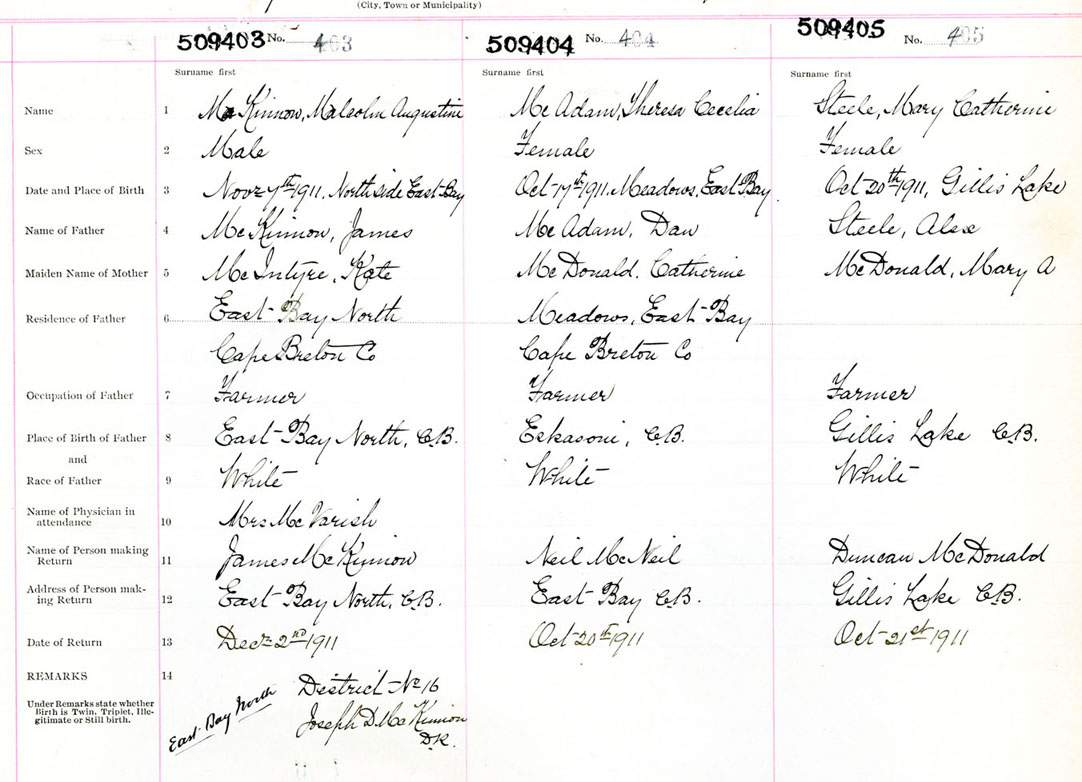 (City, Town or Municipality)
509403 No. 403 509404 No. 404 509405 No. 405
Surname first Surname first Surname first
Name 1 McKinnon, Malcolm Augustine McAdam, Theresa Cecelia Steele, Mary Catherine
Sex 2 Male Female Female
Date and Place of Birth 3 Nov 7th 1911, North side East Bay Oct 17th 1911, Meadows, East Bay Oct 20th 1911, Gillis Lake
Name of Father 4 McKinnon, James McAdam, Dan Steele, Alex
Maiden Name of Mother 5 McIntyre, Kate McDonald, Catherine McDonald, Mary A
Residence of Father 6 East Bay North Meadows, East Bay
Cape Breton Co Cape Breton Co
Occupation of Father 7 Farmer Farmer Farmer
Place of Birth of Father 8 East Bay North, C.B. Eskasoni, C.B. Gillis Lake C.B.
and
Race of Father 9 White White White
Name of Physician in
attendance 10 Mrs McVarish
Name of Person making
Return 11 James McKinnon Neil McNeil Duncan McDonald
Address of Person mak-
ing Return 12 East Bay North, C.B. East Bay C.B. Gillis Lake C.B.
Date of Return 13 Dec 2nd 1911 Oct 20th 1911 Oct 21st 1911
REMARKS 14 District No 16
Under Remarks state whether
Birth is Twin, Triplet, Ille-
gitimate or Still birth.
East Bay North
Joseph D. McKinnon
D.R.